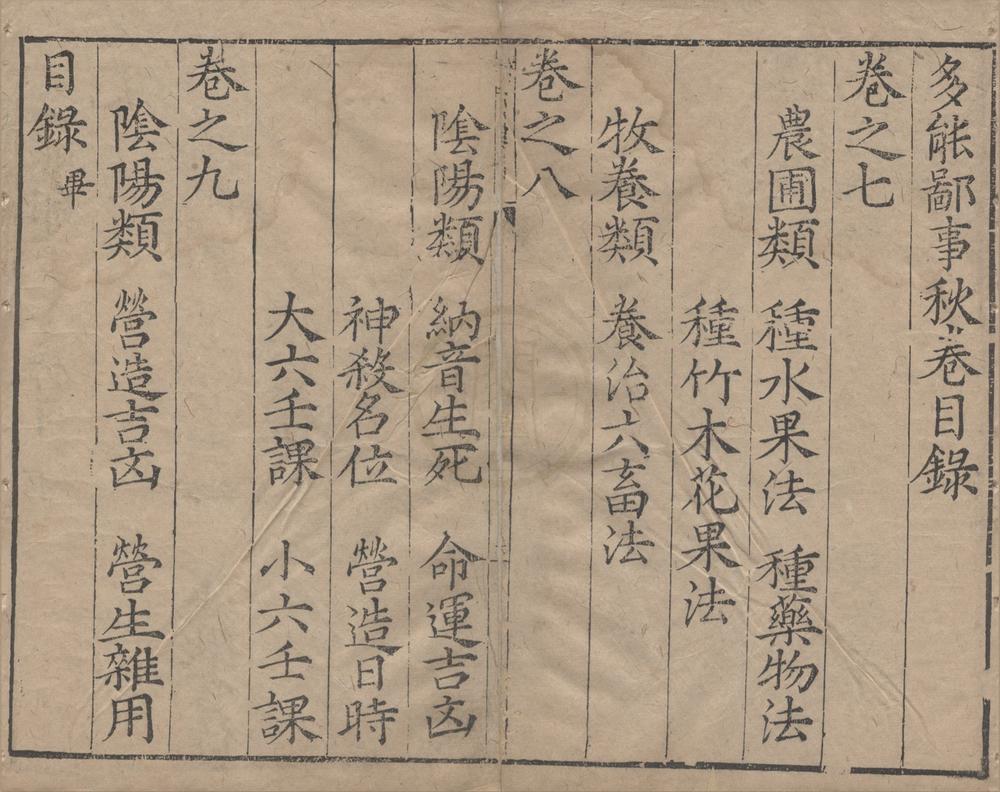 多能鄙事秋卷目錄
卷之七
農圃類 種水果法 種藥物法
種竹木花果法
牧養類 養治六畜法
卷之八
陰陽類 納音生死 命運吉凶
神殺名位 營造日時
大六壬課 小六壬課
卷之九
陰陽類 營造吉凶 營生雜用
目錄畢